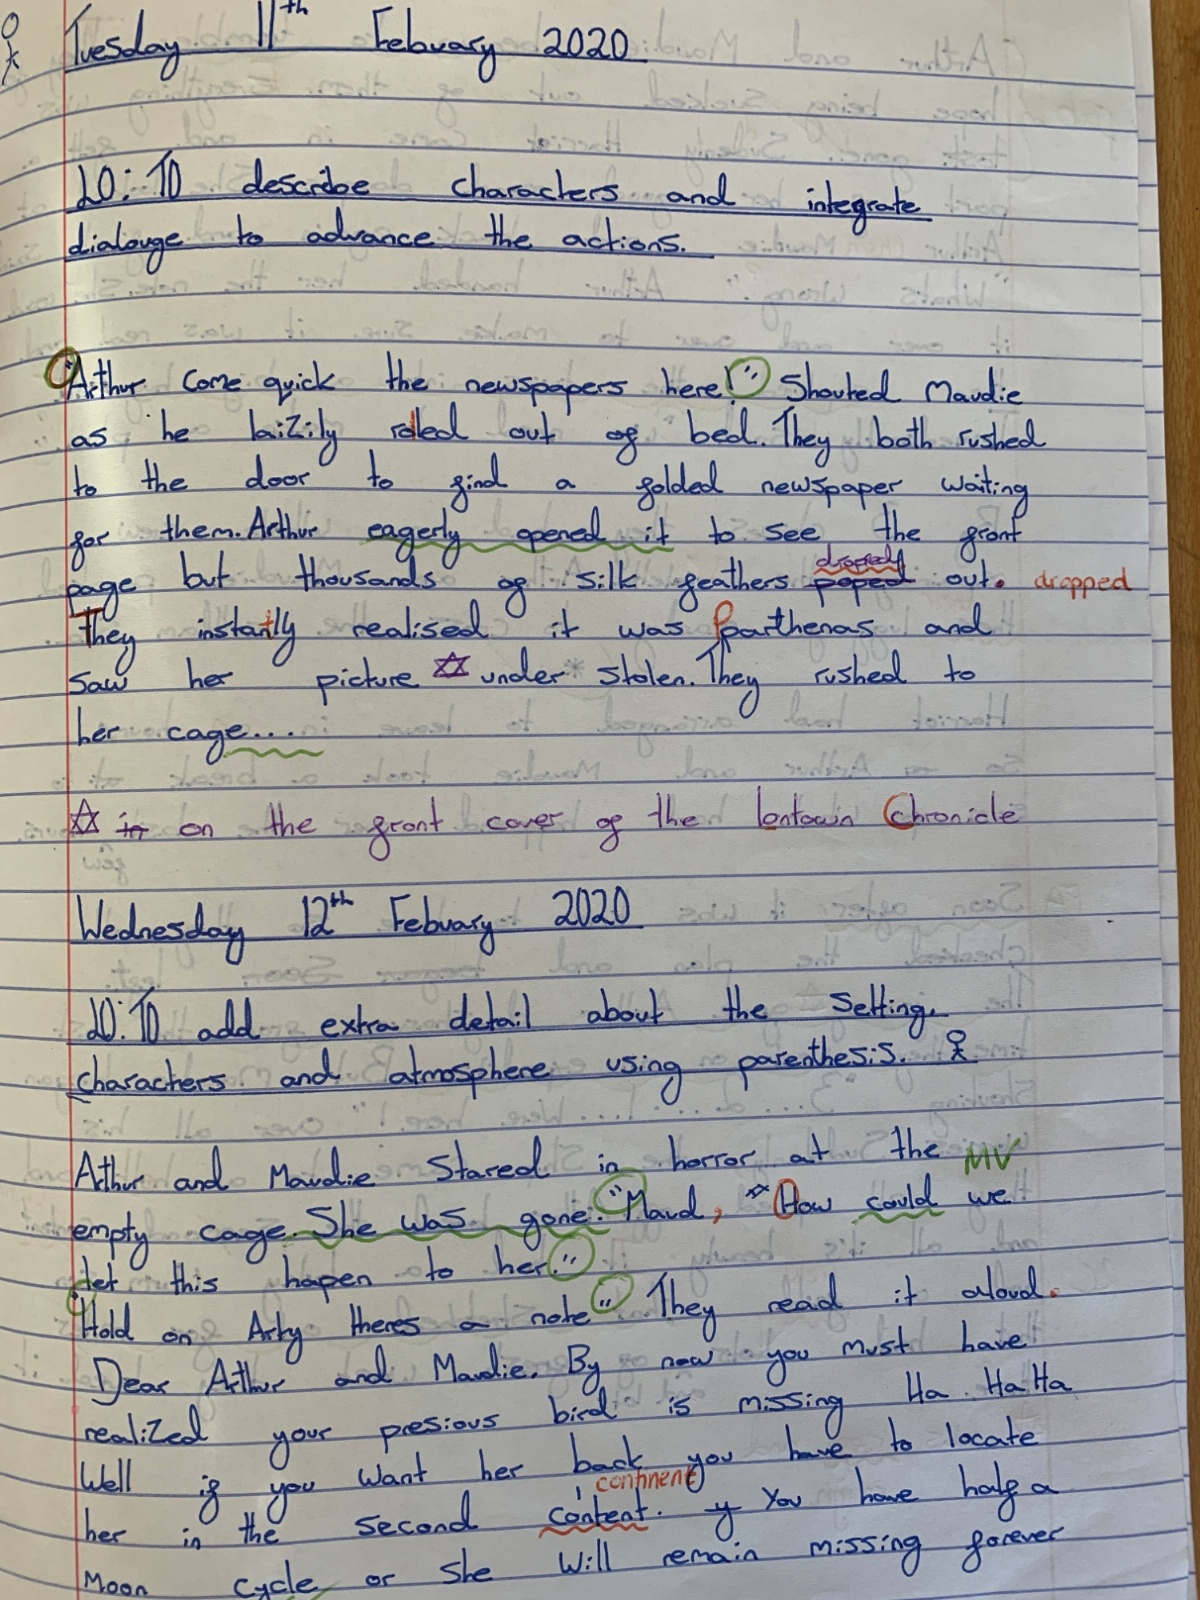 Tuesday 11th Febuary 2020
LO: TO describe characters and integrate
dialouge to advance the actions.
"Arthur come quick the newspapers here!" Shouted Maudie
as he laiZily rolled out of bed. They both rushed
to the door to find a folded newspaper waiting
for them. Arthur eagerly opened it to see the front
page but thousands of silk feathers poped out. dropped
They instantly realised it was Parthenas and
saw her picture ☆ under stolen. They rushed to
her cage....
☆ in on the front cover of the lontown Chronicle
Wednesday 12th Febuary 2020
LO: TO add extra detail about the Setting,
characters and atmosphere using parenthesis.
Arthur and Maudie Stared in horror at the MV
empty cage. She was gone. "Maud, How could we
let this hapen to her."
"Hold on Arty theres a note" They read it aloud.
Dear Arthur and Maudie. By now you must have
realiZed your presious bird is missing Ha Ha Ha
Well if you want her back you have to locate
continent
her in the second content. y You have half a
Moon cycle or She Will remain missing forever